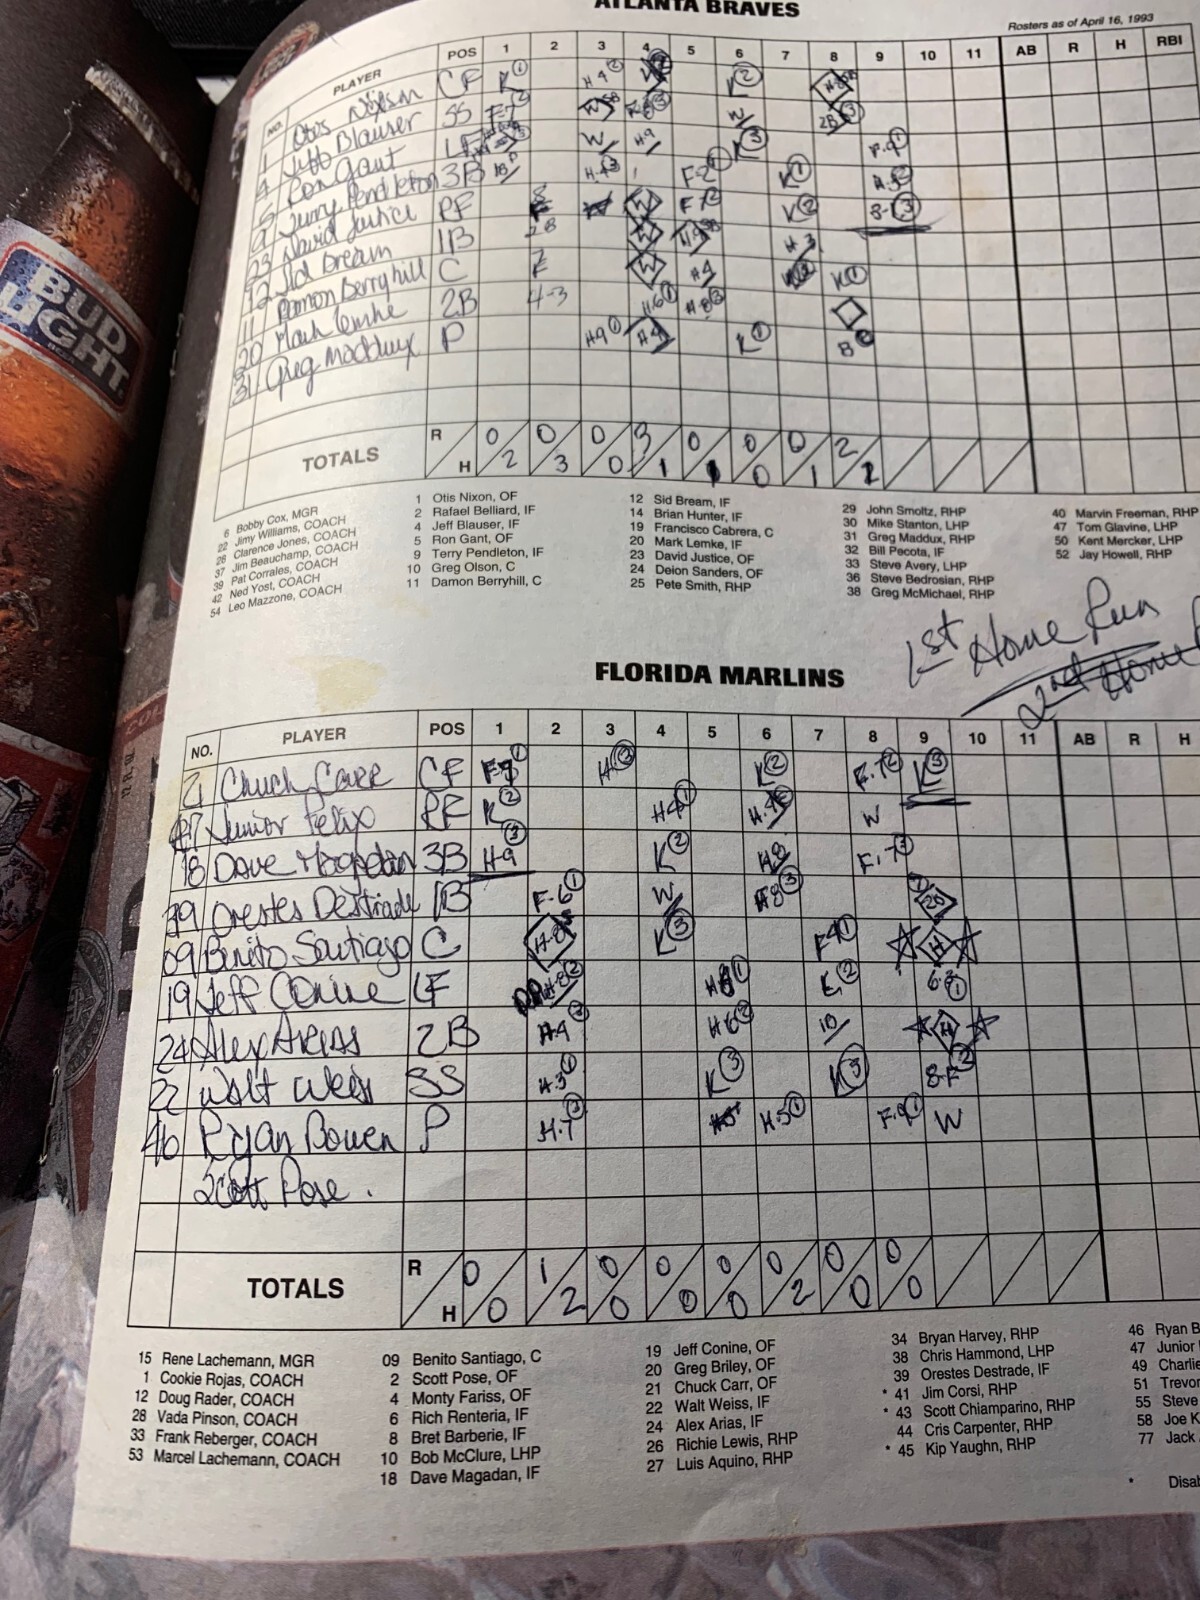 ATLANTA BRAVES
Rosters as of April 16, 1993
NO. PLAYER POS 1 2 3 4 5 6 7 8 9 10 11 AB R H RBI
1 Otis Nixon CF K H-9 K
4 Jeff Blauser SS F-7 W W 2B
5 Ron Gant LF W H-9 K F-9
9 Terry Pendleton 3B 1B F-2 K
23 David Justice RF W F7 K 8-
12 Sid Bream 1B W H-3
11 Damon Berryhill C W H4 K
20 Mark Lemke 2B 4-3 H-6 H-8
31 Greg Maddux P H9 H4 K 8
TOTALS R H 0/2 0/3 0/0 3/1 0/1 0/0 0/1 2/2
6 Bobby Cox, MGR
22 Jimy Williams, COACH
26 Clarence Jones, COACH
37 Jim Beauchamp, COACH
39 Pat Corrales, COACH
42 Ned Yost, COACH
54 Leo Mazzone, COACH
1 Otis Nixon, OF
2 Rafael Belliard, IF
4 Jeff Blauser, IF
5 Ron Gant, OF
9 Terry Pendleton, IF
10 Greg Olson, C
11 Damon Berryhill, C
12 Sid Bream, IF
14 Brian Hunter, IF
19 Francisco Cabrera, C
20 Mark Lemke, IF
23 David Justice, OF
24 Deion Sanders, OF
25 Pete Smith, RHP
29 John Smoltz, RHP
30 Mike Stanton, LHP
31 Greg Maddux, RHP
32 Bill Pecota, IF
33 Steve Avery, LHP
36 Steve Bedrosian, RHP
38 Greg McMichael, RHP
40 Marvin Freeman, RHP
47 Tom Glavine, LHP
50 Kent Mercker, LHP
52 Jay Howell, RHP
1st Home Run
2nd Home
FLORIDA MARLINS
NO. PLAYER POS 1 2 3 4 5 6 7 8 9 10 11 AB R H
21 Chuch Carr CF K F-7 K
47 Junior Felix RF K H4 W
18 Dave Magadan 3B H-9 K H8 F-7
39 Orestes Destrade 1B F-6 W F8
09 Benito Santiago C H-8 K F4 H
19 Jeff Conine LF 6-3
24 Alex Arias 2B H4 H6 1B H
22 Walt Weiss SS H-3 K K 8-F
46 Ryan Bowen P H-7 H-5 F-9 W
Scott Pose.
TOTALS R H 0/0 1/2 0/0 0/0 0/0 0/2 0/0 0/0
15 Rene Lachemann, MGR
1 Cookie Rojas, COACH
12 Doug Rader, COACH
28 Vada Pinson, COACH
33 Frank Reberger, COACH
53 Marcel Lachemann, COACH
09 Benito Santiago, C
2 Scott Pose, OF
4 Monty Fariss, OF
6 Rich Renteria, IF
8 Bret Barberie, IF
10 Bob McClure, LHP
18 Dave Magadan, IF
19 Jeff Conine, OF
20 Greg Briley, OF
21 Chuck Carr, OF
22 Walt Weiss, IF
24 Alex Arias, IF
26 Richie Lewis, RHP
27 Luis Aquino, RHP
34 Bryan Harvey, RHP
38 Chris Hammond, LHP
39 Orestes Destrade, IF
* 41 Jim Corsi, RHP
* 43 Scott Chiamparino, RHP
44 Cris Carpenter, RHP
* 45 Kip Yaughn, RHP
46 Ryan B
47 Junior
49 Charlie
51 Trevor
55 Steve
58 Joe K
77 Jack
* Disa
BUD
LIGHT